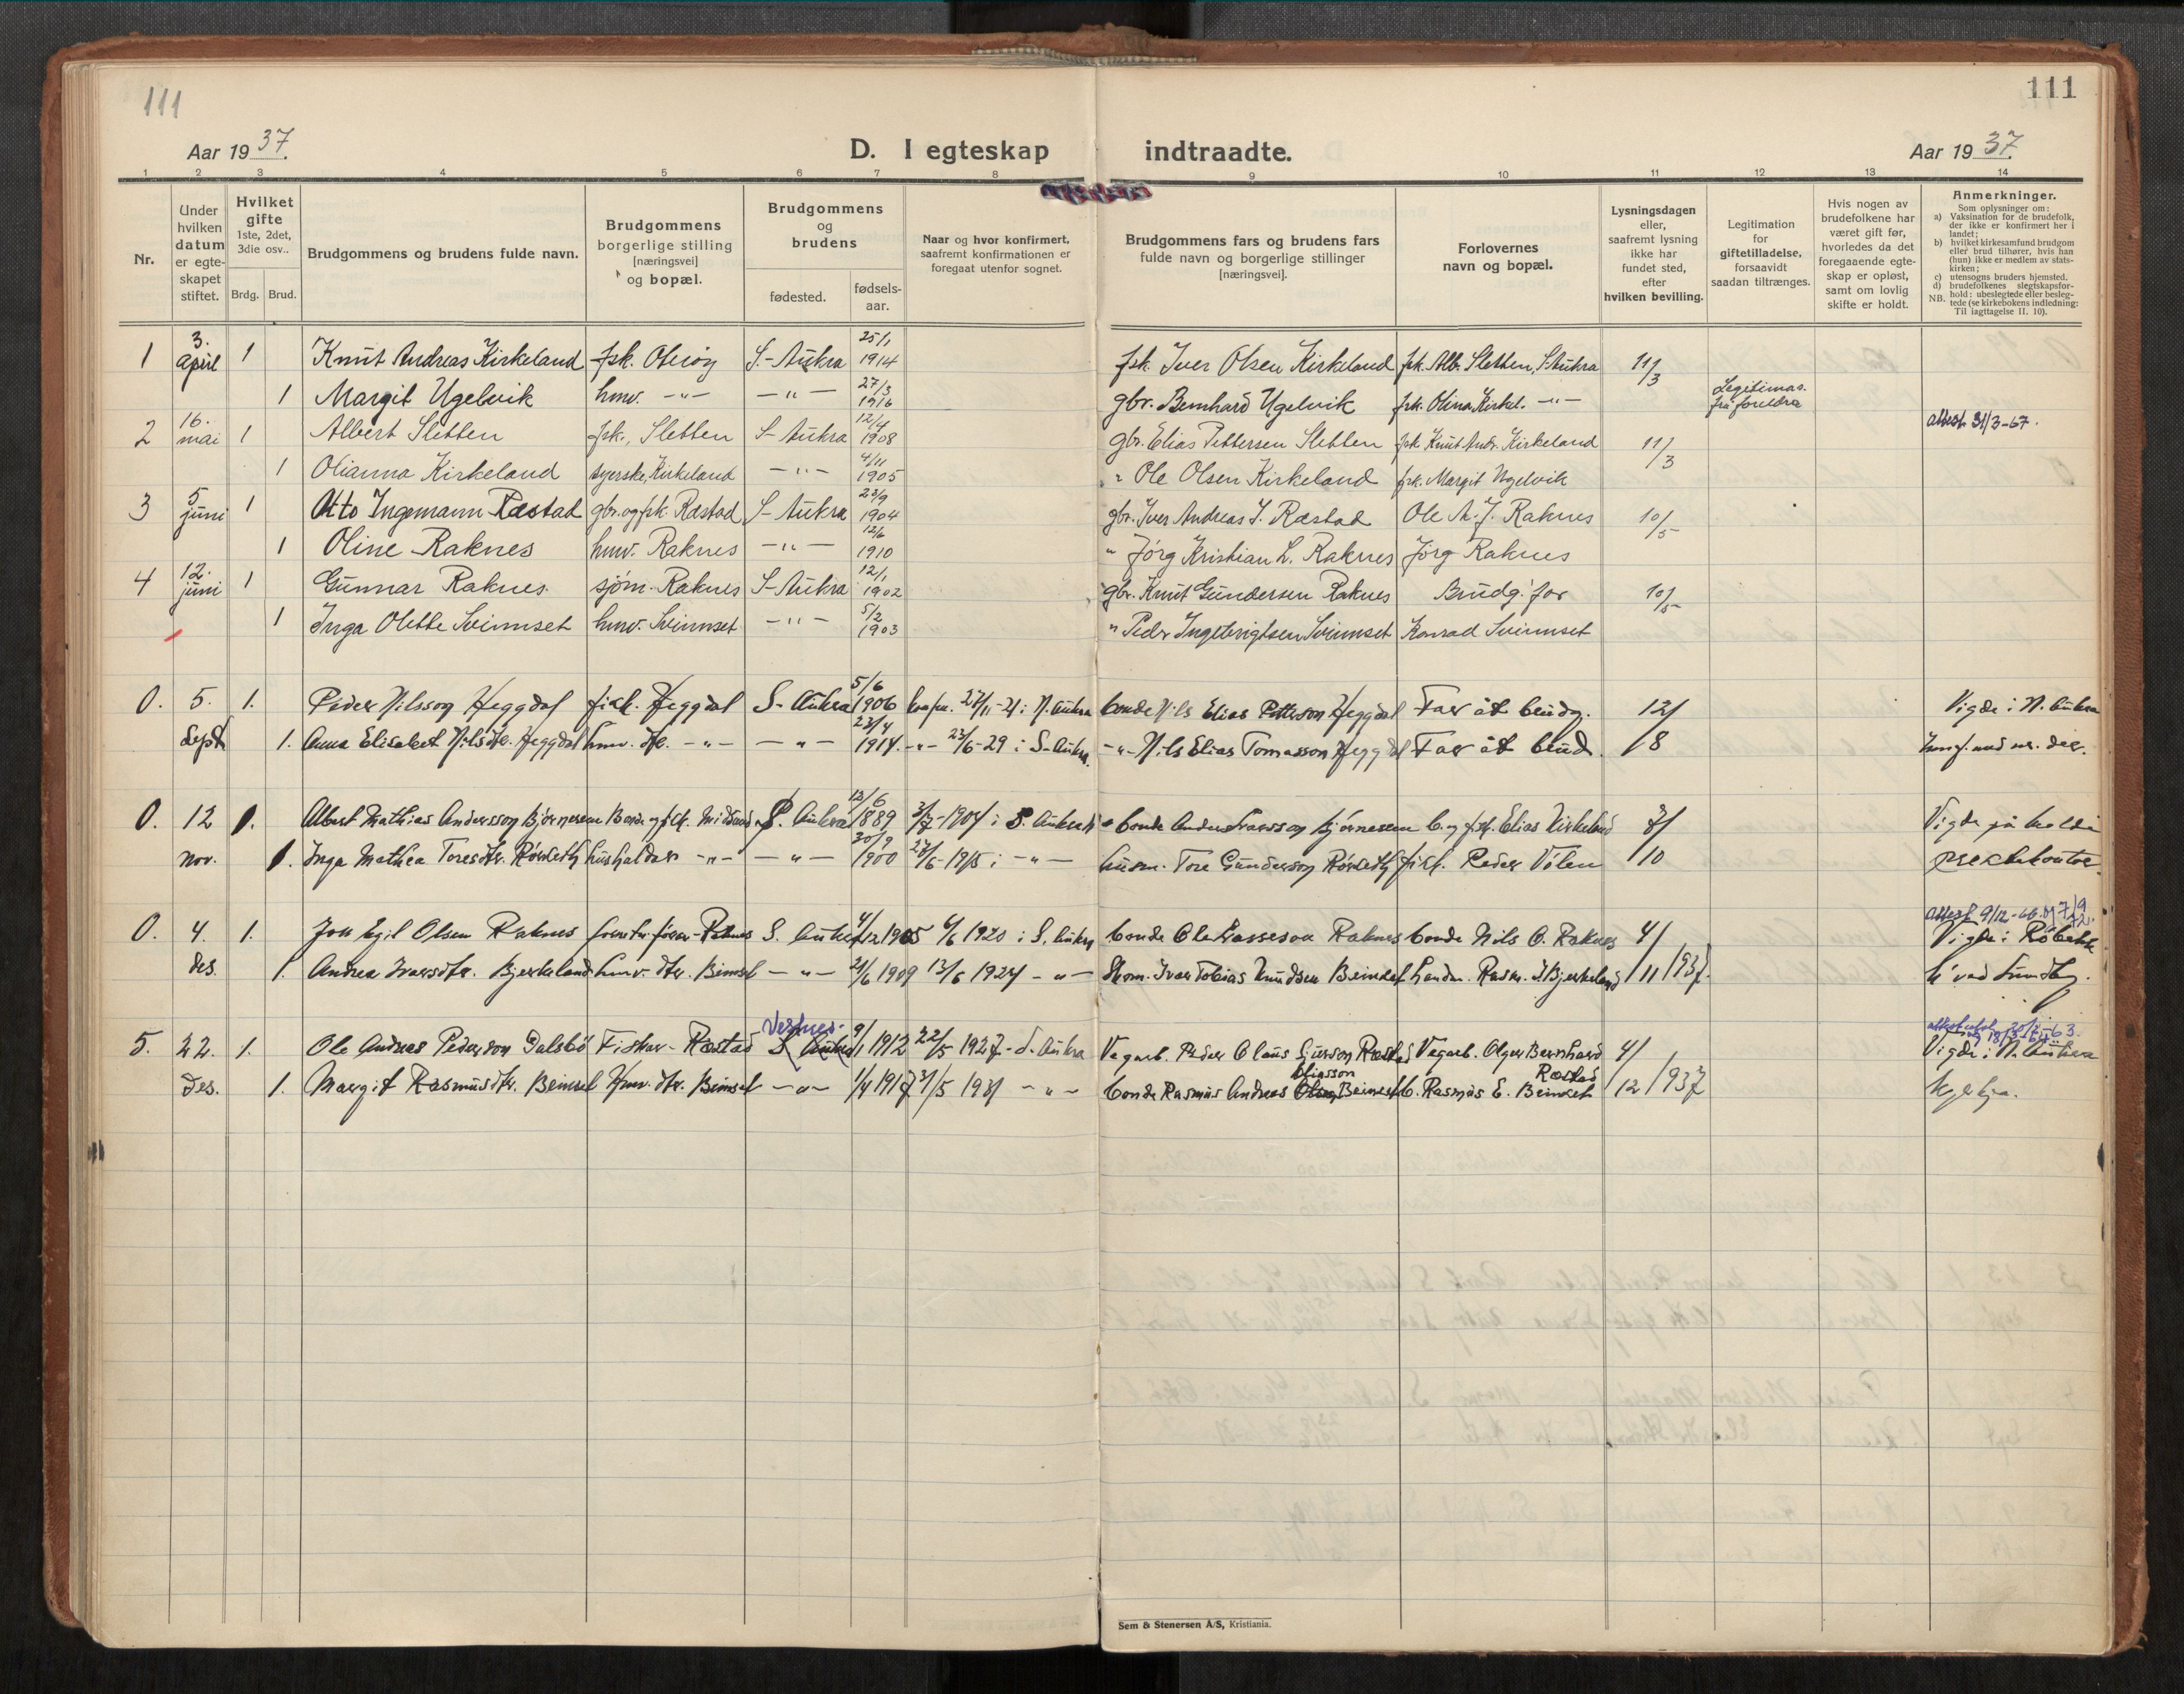 111
111
Aar 1937.
D. I egteskap indtraadte.
Aar 1937.
1 2 3 4 5 6 7 8 9 10 11 12 13 14
Nr.
Under hvilken datum er egte- skapet stiftet.
Hvilket gifte 1ste, 2det, 3die osv..
Brdg. Brud.
Brudgommens og brudens fulde navn.
Brudgommens borgerlige stilling [næringsvei] og bopæl.
Brudgommens og brudens
fødested. fødsels- aar.
Naar og hvor konfirmert, saafremt konfirmationen er foregaat utenfor sognet.
Brudgommens fars og brudens fars fulde navn og borgerlige stillinger [næringsvei].
Forlovernes navn og bopæl.
Lysningsdagen eller, saafremt lysning ikke har fundet sted, efter hvilken bevilling.
Legitimation for giftetilladelse, forsaavidt saadan tiltrænges.
Hvis nogen av brudefolkene har været gift før, hvorledes da det foregaaende egte- skap er opløst, samt om lovlig skifte er holdt.
Anmerkninger.
Som oplysninger om:
a) Vaksination for de brudefolk, der ikke er konfirmert her i landet;
b) hvilket kirkesamfund brudgom eller brud tilhører, hvis han (hun) ikke er medlem av stats- kirken;
c) utensogns bruders hjemsted.
d) brudefolkenes slegtskapsfor- hold: ubeslegtede eller besleg- tede (se kirkebokens indledning: Til iagttagelse II. 10).
NB.
1 3. april 1 Knut Andreas Kirkeland fsk. Oterøy S-Aukra 25/1 1914 fsk. Iver Olsen Kirkeland fsk. Alb. Sletten, S. Aukra 11/3
1 Margit Ugelvik hmv. -"- -"- 27/3 1916 gbr. Bernhard Ugelvik frk. Olina Kirkel. -"- Legitimas. frå foreldra
2 16. mai 1 Albert Sletten fsk., Sletten S-Aukra 12/4 1908 gbr. Elias Pettersen Sletten fsk Knut Andr. Kirkeland 11/3 attest 31/3-67.
1 Olianna Kirkeland syerske, Kirkeland -"- 4/11 1905 " Ole Olsen Kirkeland frk. Margit Ugelvik
3 5 juni 1 Otto Ingemann Ræstad gbr. og fsk. Ræstad S-Aukra 23/9 1904 gbr. Iver Andreas I. Ræstad Ole A. J. Raknes 10/5
1 Oline Raknes hmv. Raknes -"- 12/6 1910 " Jørg Kristian L. Raknes Jørg Raknes
4 12. juni 1 Gunnar Raknes sjøm. Raknes S-Aukra 12/1 1902 gbr. Knut Gundersen Raknes Brudg. far 10/5
1 Inga Olette Svinnset hmv. Svinnset -"- 5/2 1903 " Peder Ingebrigtsen Svinnset Konrad Svinnset
0. 5. 1. Peder Nilsson Heggdal fisk. Heggdal S-Aukra 5/6 1906 konfm. 27/11-21 i N. Aukra bonde Nils Elias Petterson Heggdal Far åt brudg. 12/ Vigde i N. Aukra
Sept 1. Anna Elisabet Nilsdtr. Heggdal hmv. dtr. -"- -"- 23/4 1914. -"- 23/6-29 i S-Aukra. -"- Nils Elias Tomasson Heggdal Far åt brud. /8
0. 12 1. Albert Mathias Andersson Bjørnerem Bonde og fisk. Midsund S. Aukra 12/6 1889 3/7-1904 i S. Aukra bonde Anders Larsson Bjørnerem b. og fisk. Elias Kirkeland 8/ Vigde på Molde
nov. 1. Inga Mathea Toresdtr. Rørseth hushaldar -"- -"- 30/9 1900 27/6-1915 i -"- husm. Tore Gunderson Rørseth fisk. Peder Vølen /10
attest 9/12-66. og 7/9 72.
0. 4. 1. Jon Egil Olsen Raknes Raknes S. Aukra 4/12 1905 6/6 1920 i S. Aukra bonde Ole Lasseson Raknes bonde Nils O. Raknes 4/ Vigde i Røbekk
des. 1. Andrea Ivarsdtr. Bjerkeland hmv. dtr. Beinset -"- 21/6 1909 13/6 1924 -"- Ivar Tobias Knudsen Beinset Rasm. I. Bjerkeland /11 1937.
Vestnes. attest utst. 20/2-63.
5. 22. 1. Ole Andreas Pederson Dalsbø Fiskar - Ræstad S Aukra 9/1 1912 22/5 1927 - S. Aukra Vegarb. Peder Claus Sjurson Ræstad Vegarb. Olger Bernhard Ræstad 4/ Vigde i N. Aukra
des. 1. Margit Rasmusdtr. Beinset Hmv. dtr. Beinset -"- 1/4 1917 31/5 1931 -"- bonde Rasmus Andreas Eliasson Beinset b. Rasmus E. Beinset /12 1937 kyrkja.
Sem & Stenersen A/S, Kristiania.